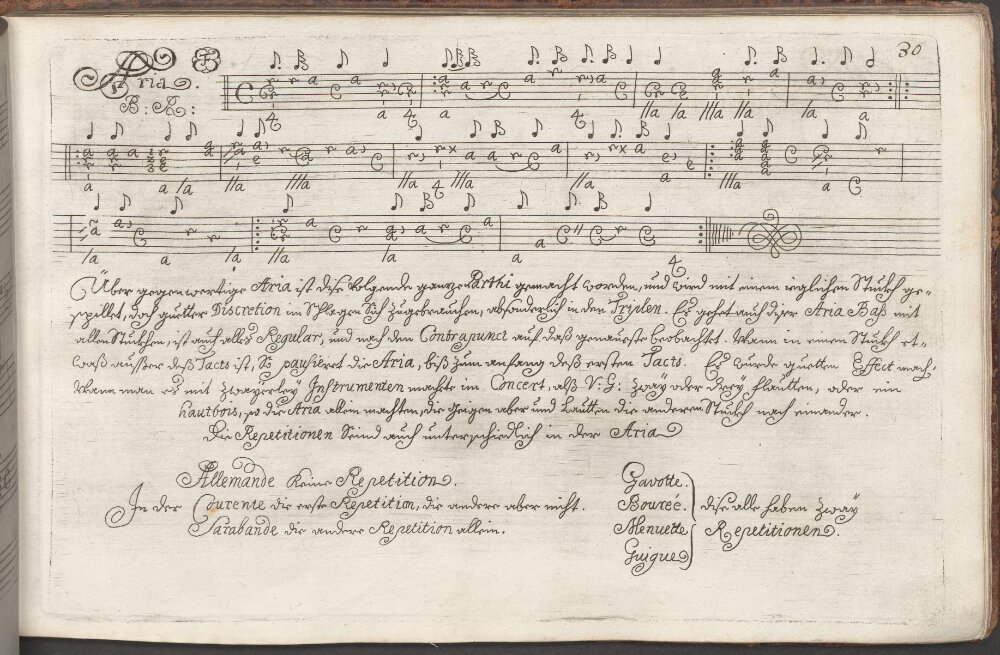 30
Aria.
B: A:
Über gegenwertige Aria ist dise folgende gantze Parthi gemacht worden, und wird mit einem ieglichen Stuckh ge-
spillet, doch guetter Discretion im Schlagen sich zugebrauchen, absonderlich in den Triplen. Es gehet auch diser Aria Baß mit
allen Stuckhen, ist auch alles Regular, und nach dem Contrapunct auf daß genaueste beobachtet. Wann in einem Stuckh et-
waß ausser deß Tacts ist, So pausieret die Aria, biß zum anfang deß ersten Tacts. Es wurde guetten Effect mach-
Wann man es mit Zwayerley Instrumenten machte im Concert, alß V: G: Zway oder Drey flautten, oder ein
hautbois, so die Aria allein machten, die Geigen aber und Lautten die anderen Stuckh nach einander.
Die Repetitionen Seind auch unterschiedlich in der Aria
Allemande Keine Repetition.
In der Courente die erste Repetition, die andere aber nicht.
Sarabande die andere Repetition allein.
Gavotte.
Boureé.
Menuette
Guigue
dise alle haben Zway
Repetitionen.